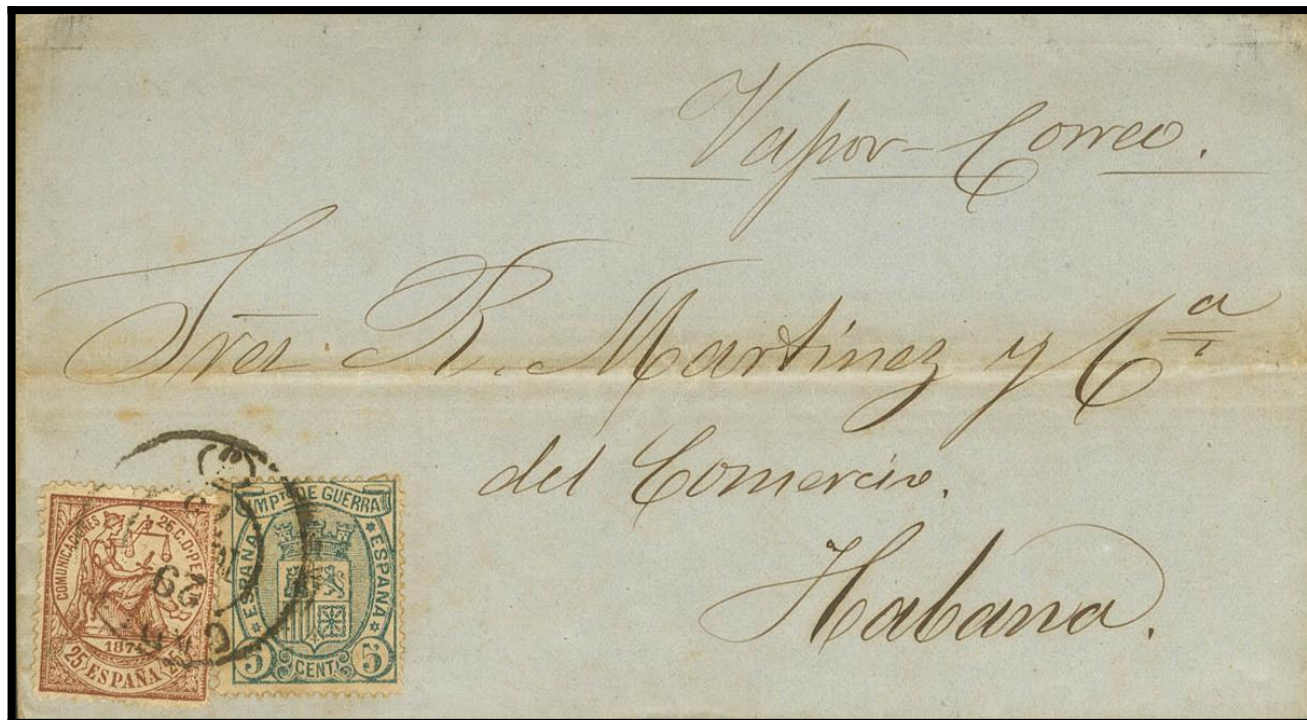 Vapor-Correo.
Sres. R. Martínez y Cª
del Comercio.
Habana.
COMUNICACIONES
1874
25 ESPAÑA 25
29
IMPTO DE GUERRA
ESPAÑA
ESPAÑA
5 CENT. 5